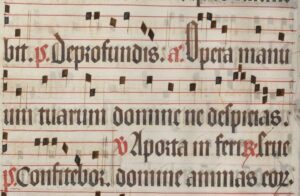 bit. ps. De profundis. a. Opera manu
um tuarum domine ne despicias.
v A porta inferi. R. erue
ps. Confitebor. domine animas eor.